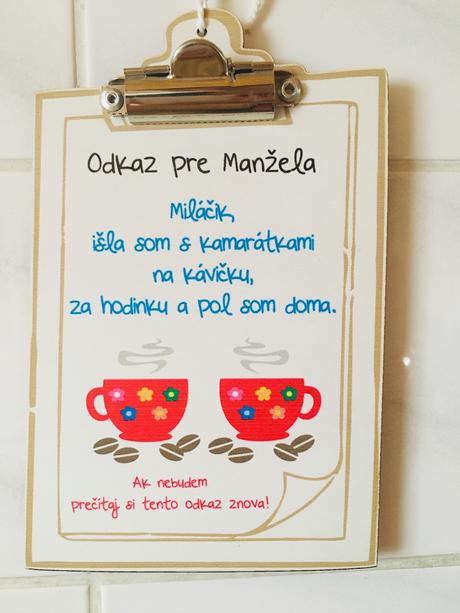 Odkaz pre Manžela
Miláčik,
išla som s kamarátkami
na kávičku,
za hodinku a pol som doma.
Ak nebudem
prečítaj si tento odkaz znova!